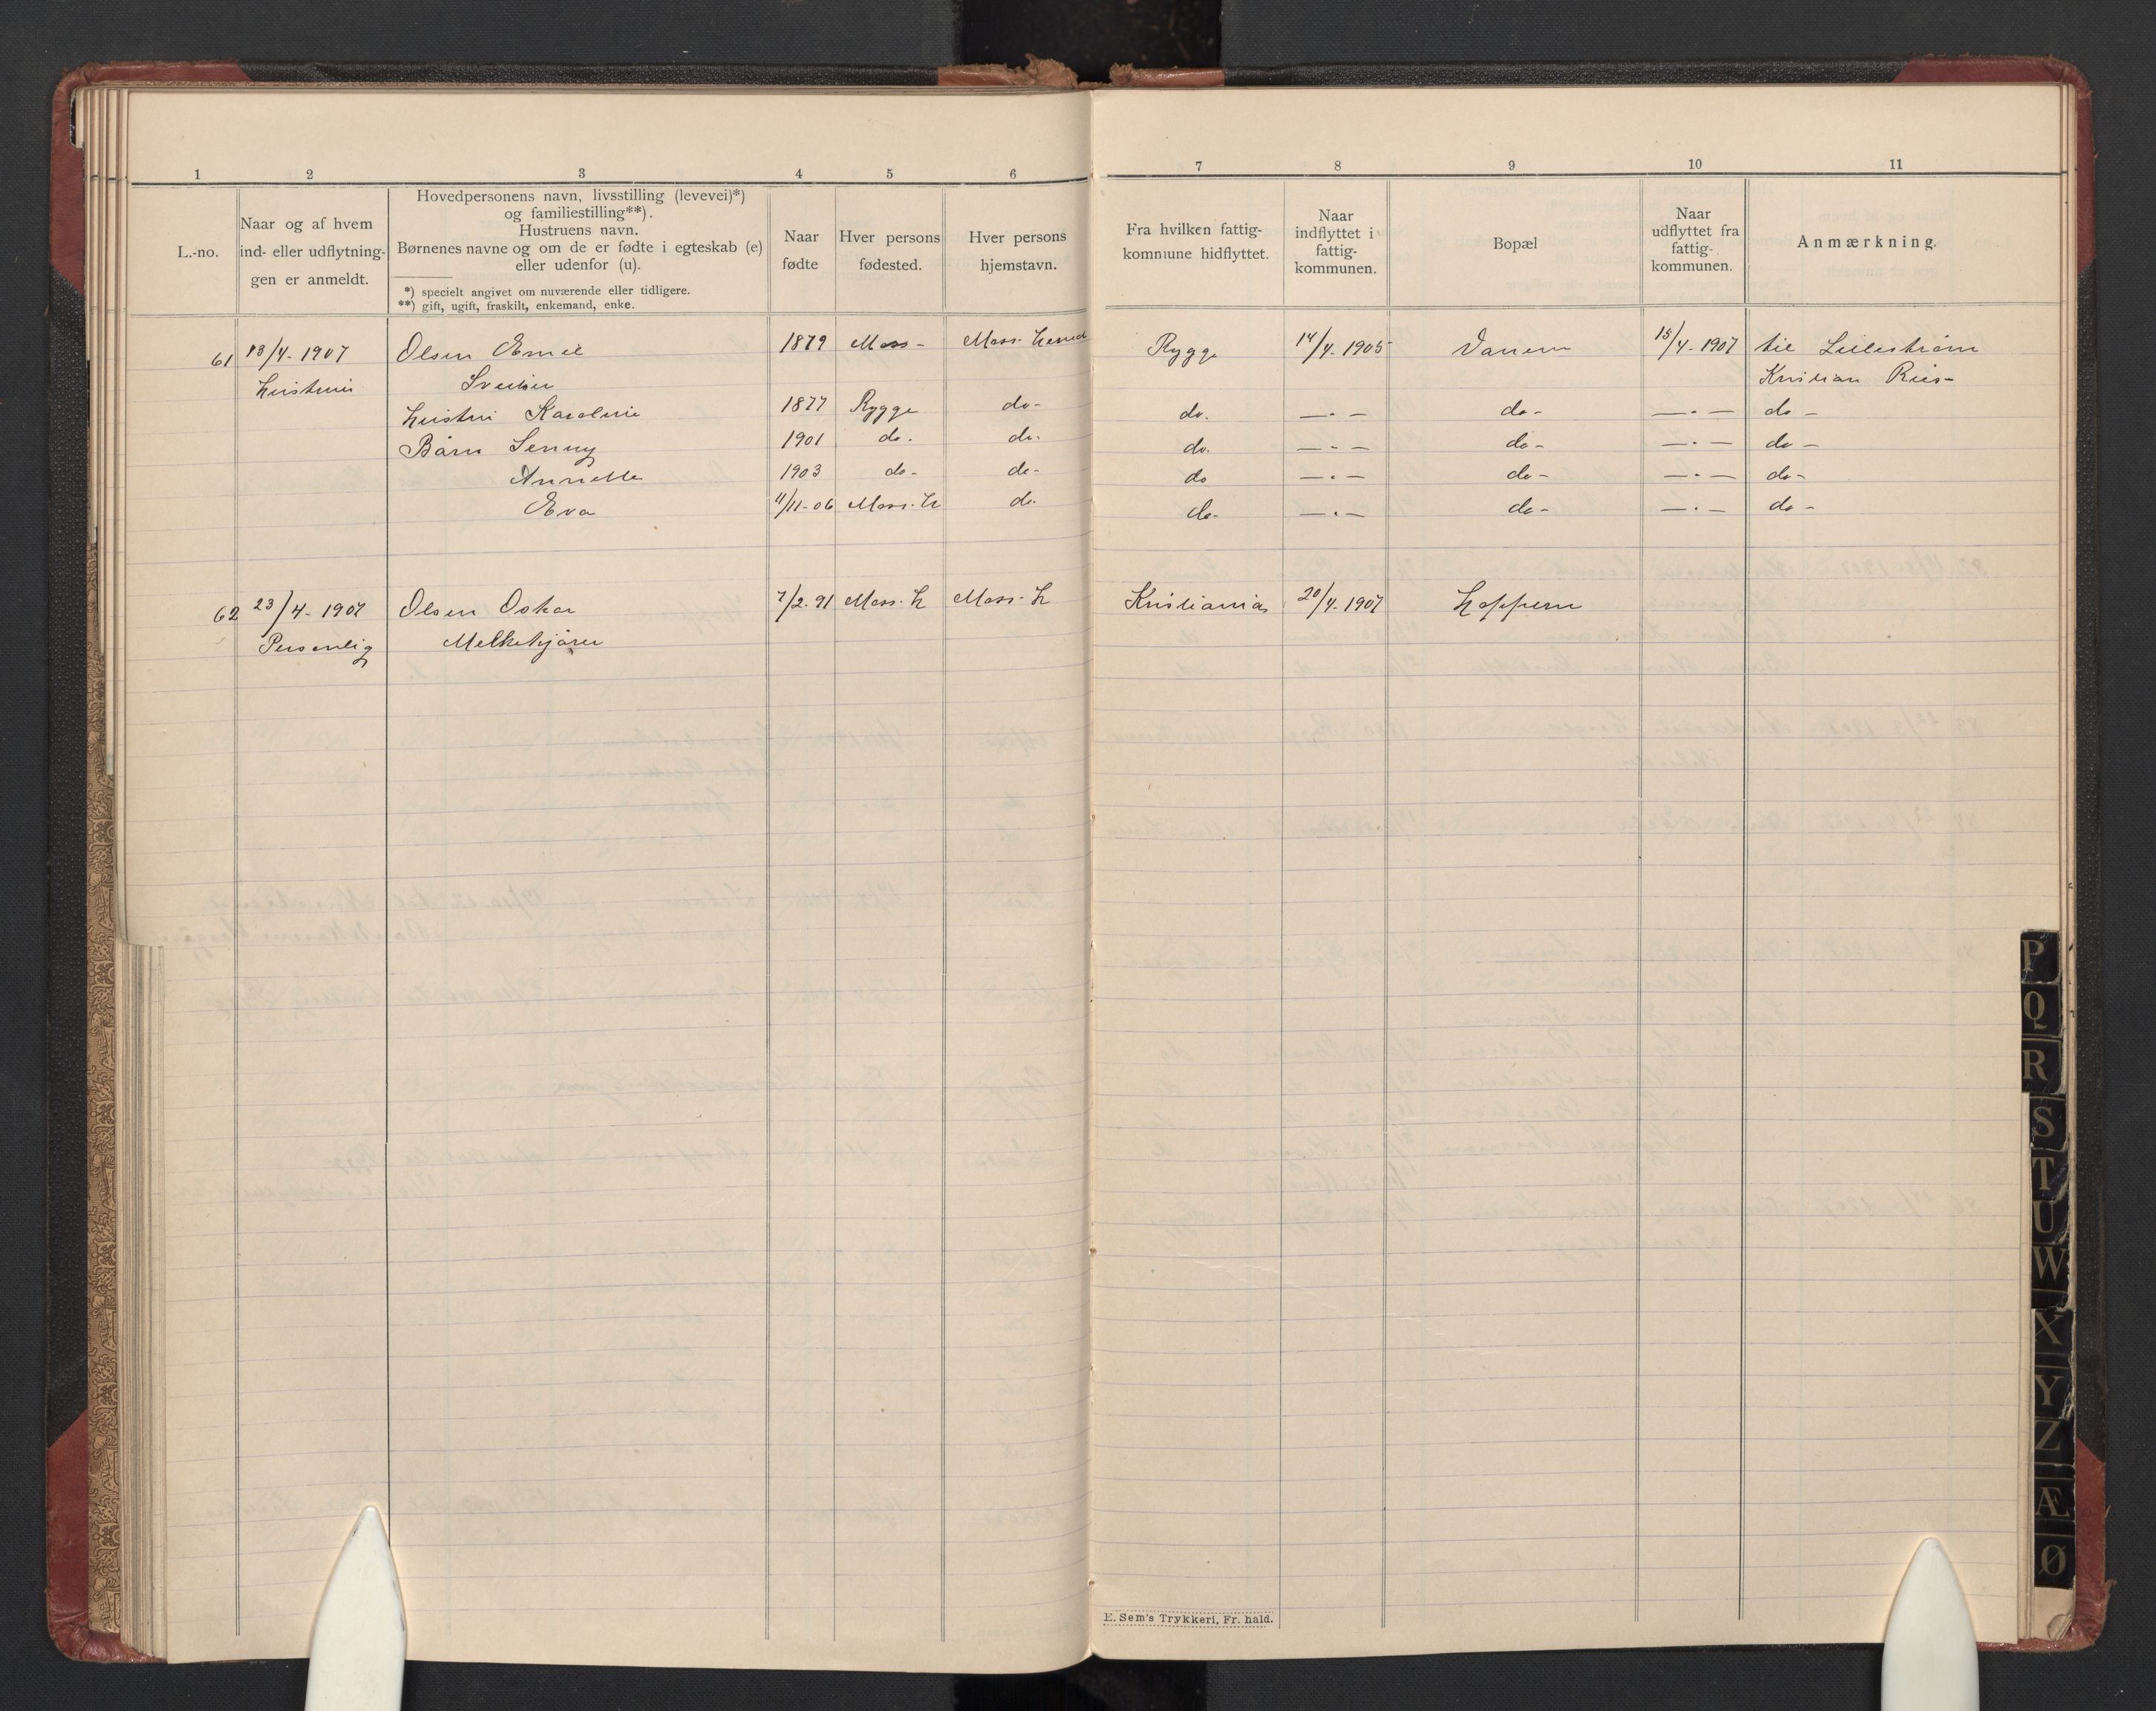 1 2 3 4 5 6 7 8 9 10 11
L.-no.
Naar og af hvem
ind- eller udflytnin-
gen er anmeldt.
Hovedpersonens navn, livsstilling (levevei)*)
og familiestilling**).
Hustruens navn.
Børnenes navne og om de er fødte i egteskab (e)
eller udenfor (u).
*) specielt angivet om nuværende eller tidligere.
**) gift, ugift, fraskilt, enkemand, enke.
Naar
fødte
Hver persons
fødested.
Hver persons
hjemstavn.
Fra hvilken fattig-
kommune hidflyttet.
Naar
indflyttet i
fattig-
kommunen.
Bopæl
Naar
udflyttet fra
fattig-
kommunen.
Anmærkning.
61 13/4-1907 Olsen Emil 1879 Moss- Moss. Rygge 14/4-1905 Vanem 15/4-1907 til Lillestrøm
Hustruen Kristian Riis-
Hustru Karoline 1877 Rygge do- do. —·— do- —·— do-
Børn Jenny 1901 do. do. do. —·— do- —·— do-
Annette 1903 do- do- do —·— do- —·— do-
Eva 4/11-06 Moss. L do. do- —·— do- —·— do-
62 23/4-1907 Olsen Oskar 7/2-91 Moss. L Moss. L Kristiania 20/4-1907 Hoppern
Personlig Melkekjører
E. Sem's Trykkeri, Fr. hald.
P
Q
R
S
T
U
W
X
Y
Z
Æ
Ø